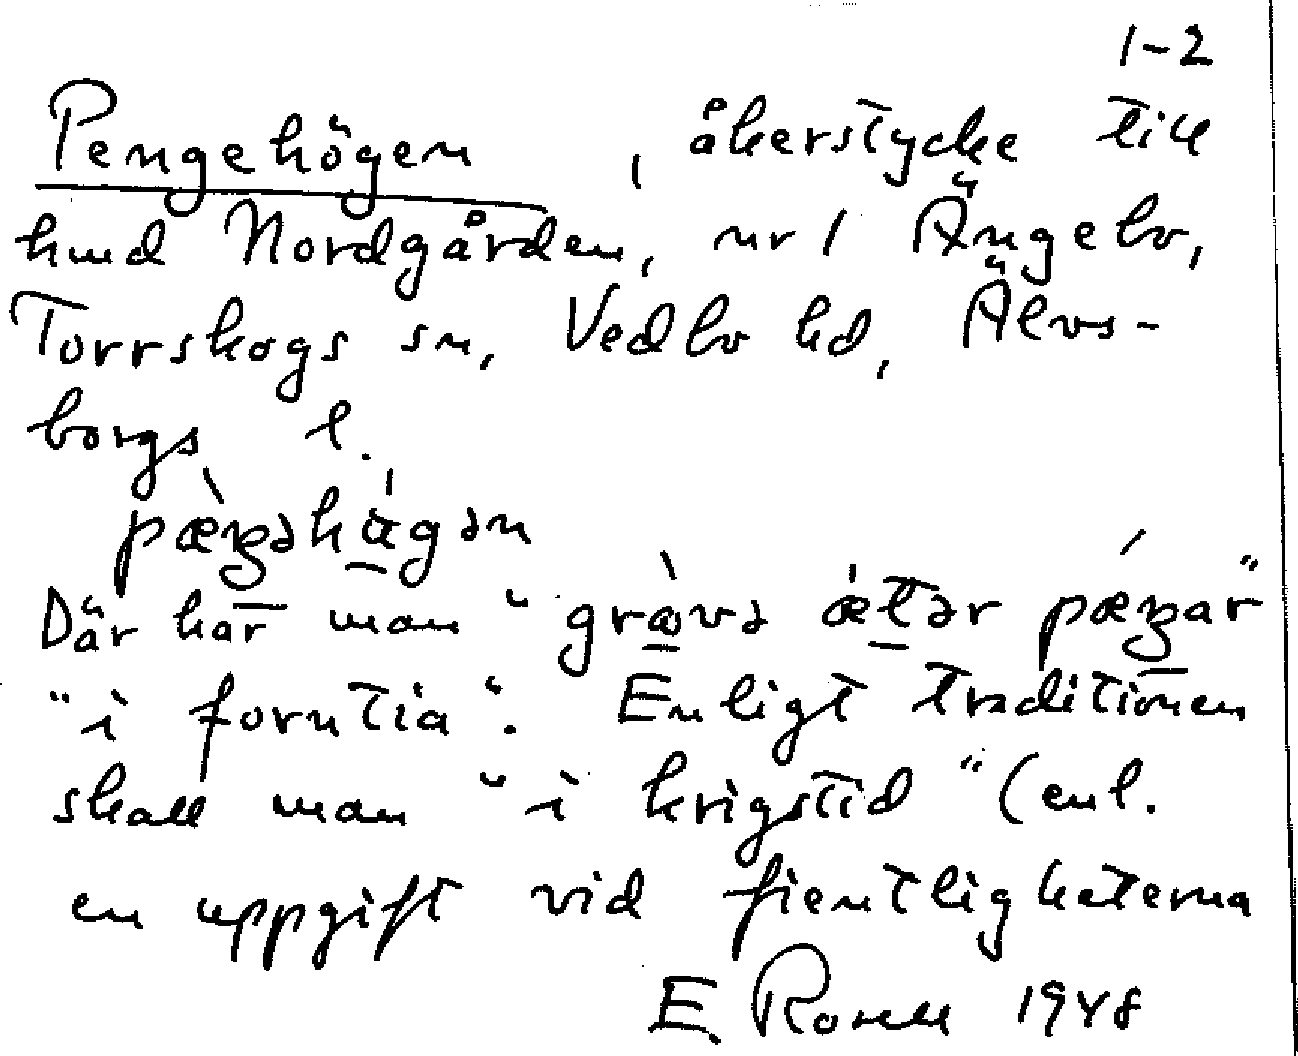 1-2
Pengehögen, åkerstycke till
hmd Nordgården, nr 1 Ängebo,
Torrskogs sn, Vedbo hd, Älvs-
borgs l.
Där har man "
"i forntia". Enligt traditionen
skall man "i krigstid" (enl.
en uppgift vid fientligheterna
E Rosell 1948